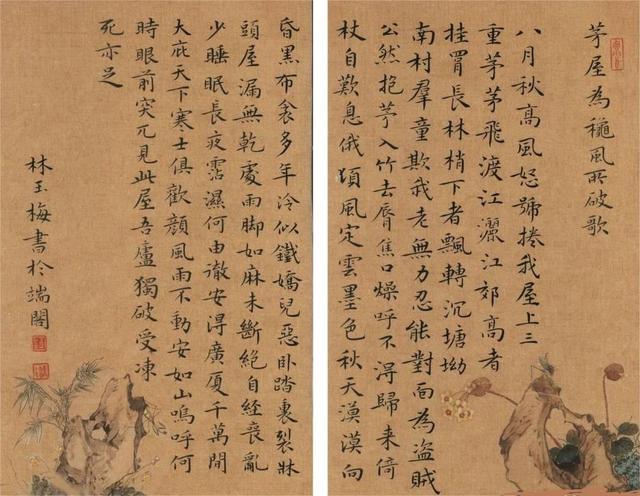 茅屋為穐風所破歌
八月秋高風怒號捲我屋上三
重茅茅飛渡江灑江郊高者
挂罥長林梢下者飄轉沉塘坳
南村羣童欺我老無力忍能對面為盜賊
公然抱茅入竹去脣焦口燥呼不得歸来倚
杖自歎息俄頃風定雲墨色秋天漠漠向
昏黑布衾多年冷似鐵嬌兒惡卧踏裏裂牀
頭屋漏無乾處雨脚如麻未斷絕自經喪亂
少睡眠長夜霑濕何由徹安得廣厦千萬間
大庇天下寒士俱歡顏風雨不動安如山嗚呼何
時眼前突兀見此屋吾廬獨破受凍
死亦足
林玉梅書於端閣